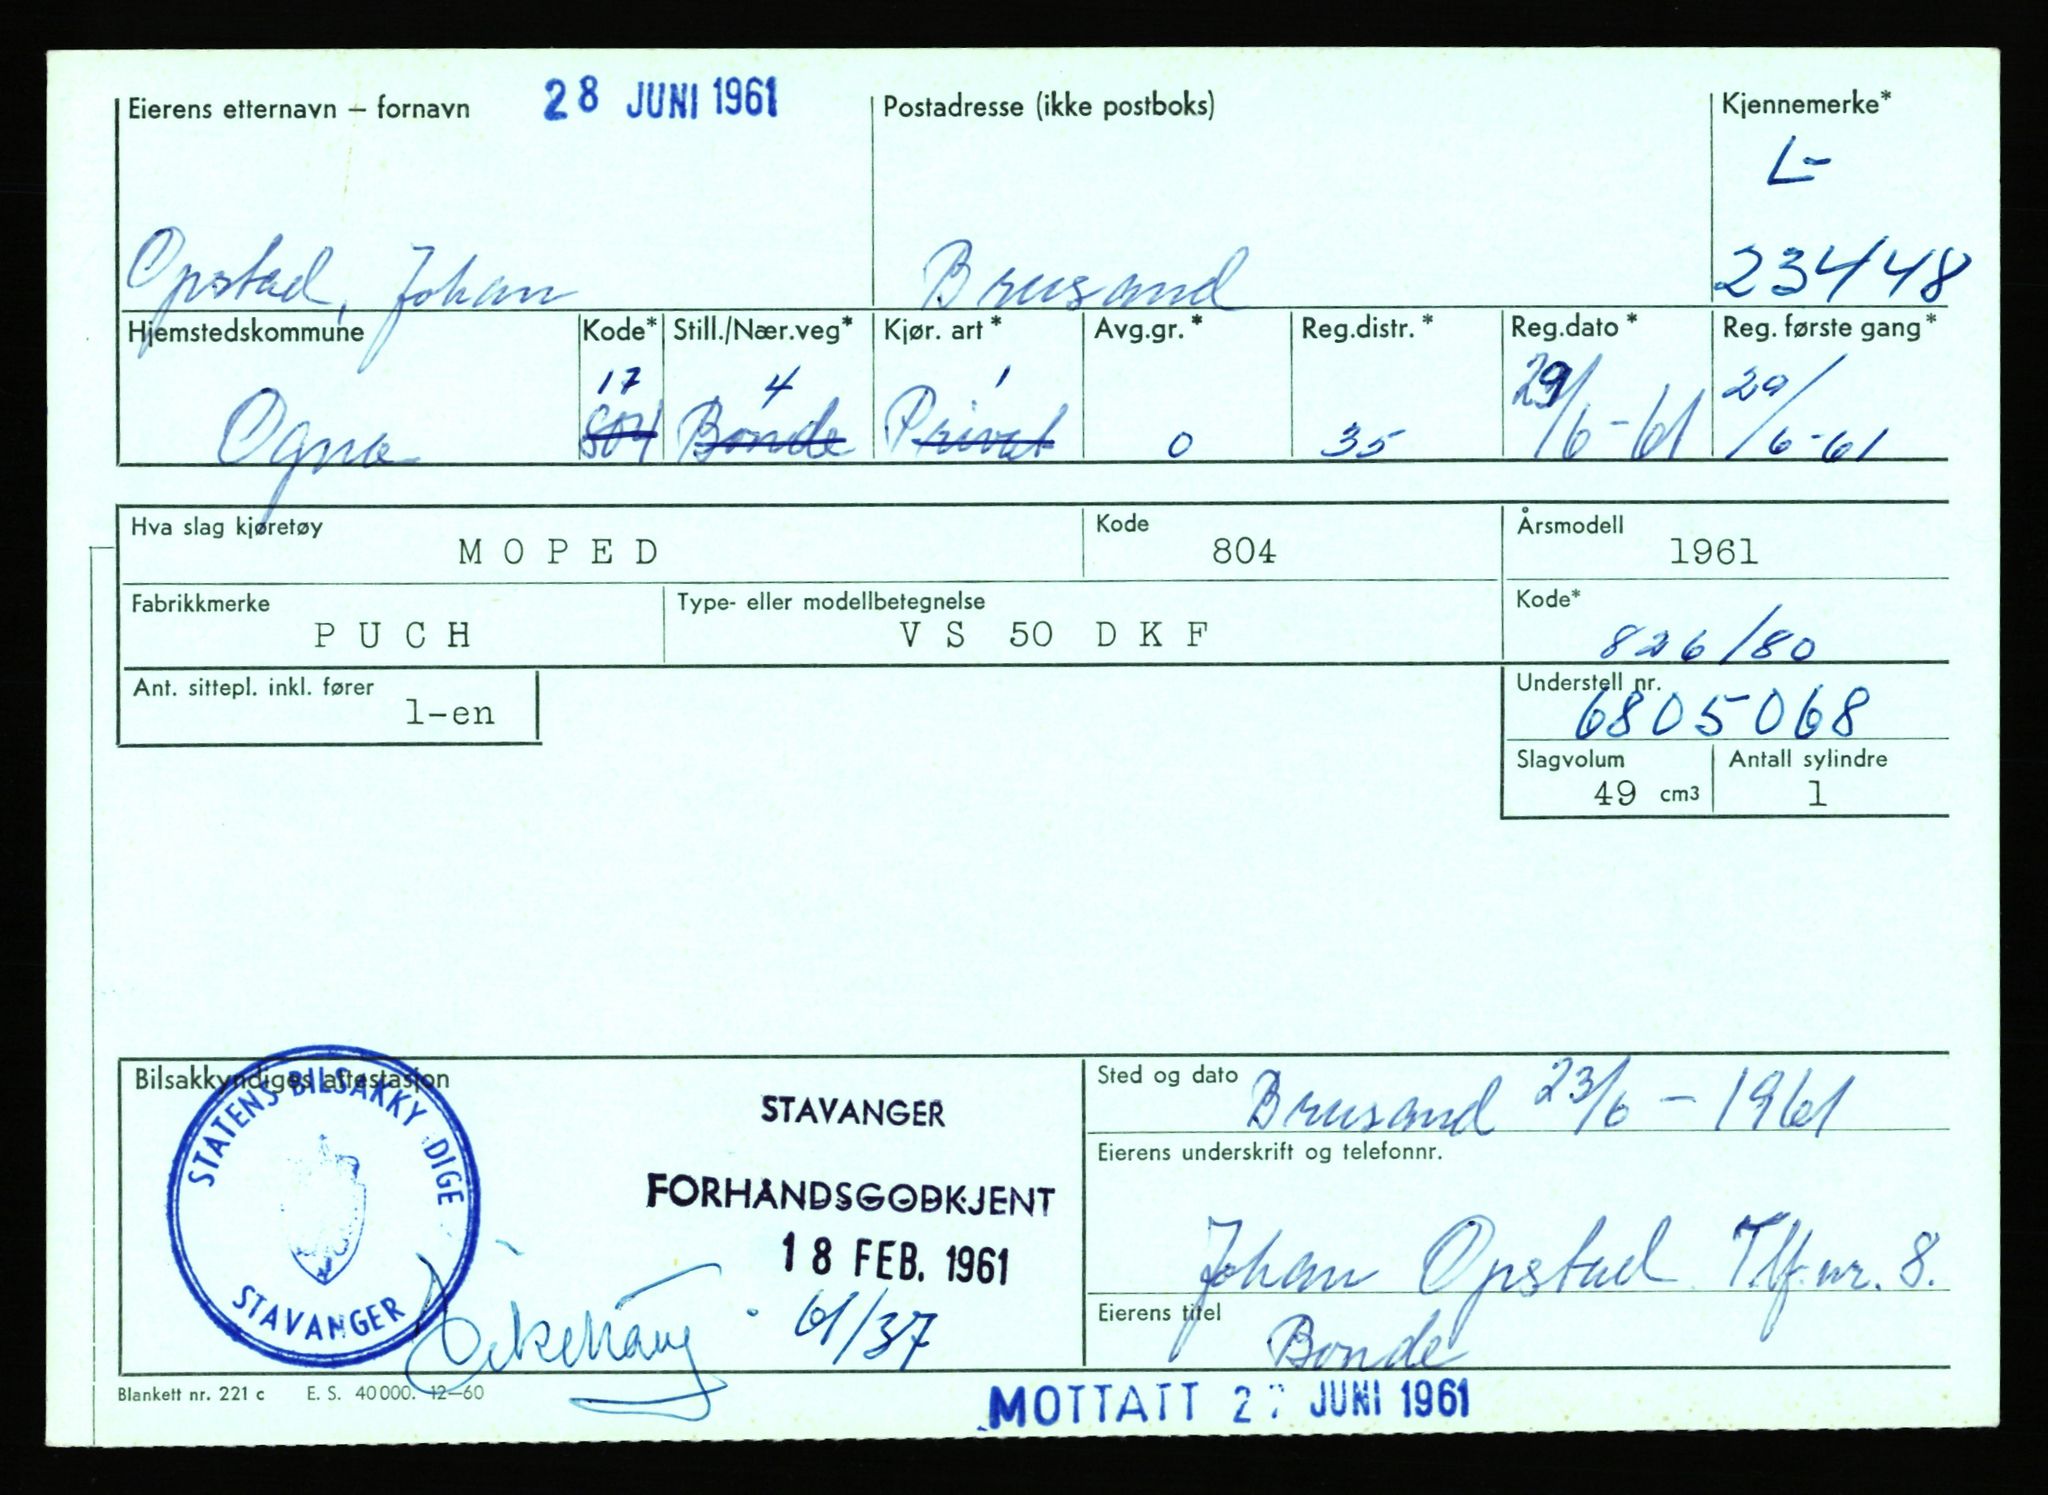 Eierens etternavn – fornavn 28 JUNI 1961 Postadresse (ikke postboks) Kjennemerke*
L-
Opstad, Johan Brusand 23448
Hjemstedskommune Kode* Still./Nær.veg* Kjør. art* Avg.gr.* Reg.distr.* Reg.dato* Reg. første gang*
17 4 1 29 29
Ogna Bonde Privat 0 35 /6-61 /6-61
Hva slag kjøretøy Kode Årsmodell
MOPED 804 1961
Fabrikkmerke Type- eller modellbetegnelse Kode*
PUCH VS 50 DKF 826/80
Ant. sittepl. inkl. fører Understell nr.
1-en 6805068
Slagvolum Antall sylindre
49 cm3 1
Bilsakkyndiges attestasjon Sted og dato Brusand 23/6 – 1961
STATENS BILSAKKY DIGE
STAVANGER
STAVANGER
FORHÅNDSGODKJENT
18 FEB. 1961
61/37
Eierens underskrift og telefonnr.
Johan Opstad Tlf.nr. 8.
Eierens titel
Bonde
Blankett nr. 221 c E. S. 40000. 12–60
MOTTATT 2 JUNI 1961